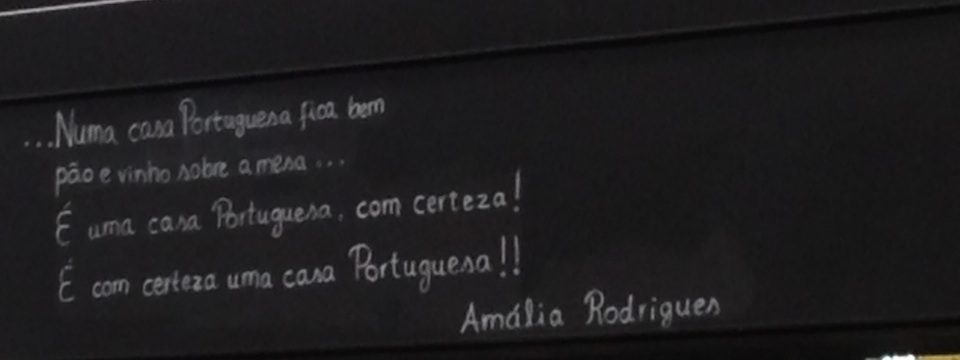 ...Numa casa Portuguesa fica bem
pão e vinho sobre a mesa...
É uma casa Portuguesa, com certeza!
É com certeza uma casa Portuguesa!!
Amália Rodrigues